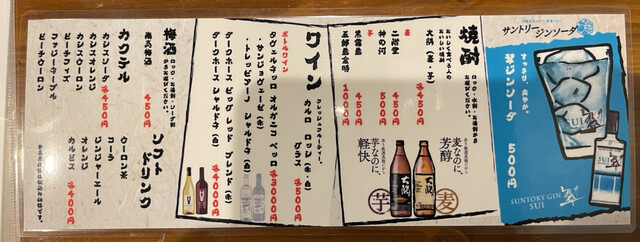 サントリージンソーダ
すっきり、爽やか。
翠ジンソーダ 500円
SUI
翠
SUNTORY GIN
SUI
焼酎
ロック・水割・お湯割から
お選びください。
おいしく食べる人の
おいしい焼酎
大隅(麦・芋)
450円
麦
二階堂 450円
神の河 500円
芋
黒霧島 450円
五郎島金時 1000円
麦なのに、
芳醇
芋なのに、
軽快
大隅
麦
芋
ワイン
フレッシュフルーティー。
カルロ ロッシ(赤・白)
グラス ¥500円
ボトルワイン
タヴェルネッロ オルガニコ
サンジョヴェーゼ(赤)
トレッビアーノ シャルドネ(白)
¥3000円
ダークホース ビッグ レッド ブレンド(赤)
ダークホース シャルドネ(白)
¥4000円
梅酒
ロック・水割・お湯割・ソーダ割
からお選びください。
南高梅酒 450円
カクテル ¥450円
カシスソーダ
カシスオレンジ
カシスウーロン
ピーチフィズ
ファジーネーブル
ピーチウーロン
ソフト
ドリンク
ウーロン茶
コーラ
ジンジャーエール
オレンジ
カルピス
¥400円